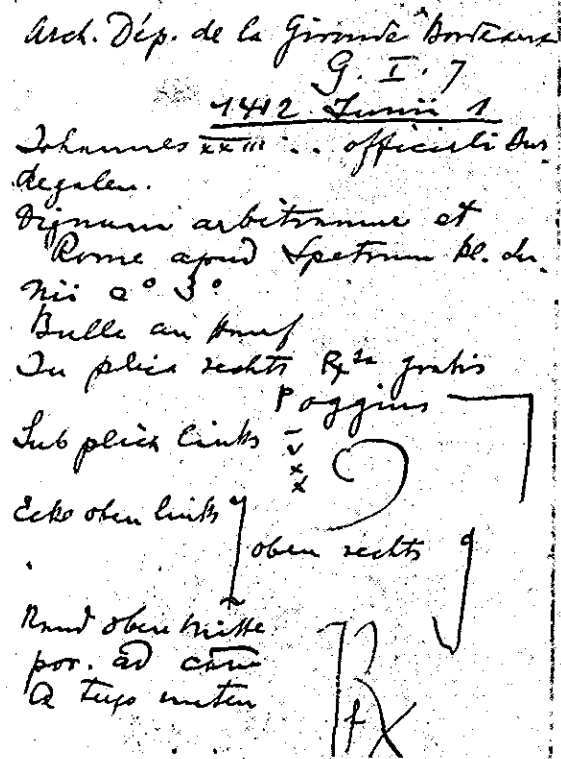 Arch. Dép. de la Gironde Bordeaux
G. I. 7
1412 Junii 1
Johannes XXIII .. officiali Bur
degalen.
Dignum arbitramur et
Rome apud Spetrum kl. Ju
nii a° 3°
Bulle an Hanf
In plica rechts Rta gratis
Poggius
Sub plica links
x
x
Ecke oben links
oben rechts
Rand oben Mitte
por. ad cam
A tergo unten